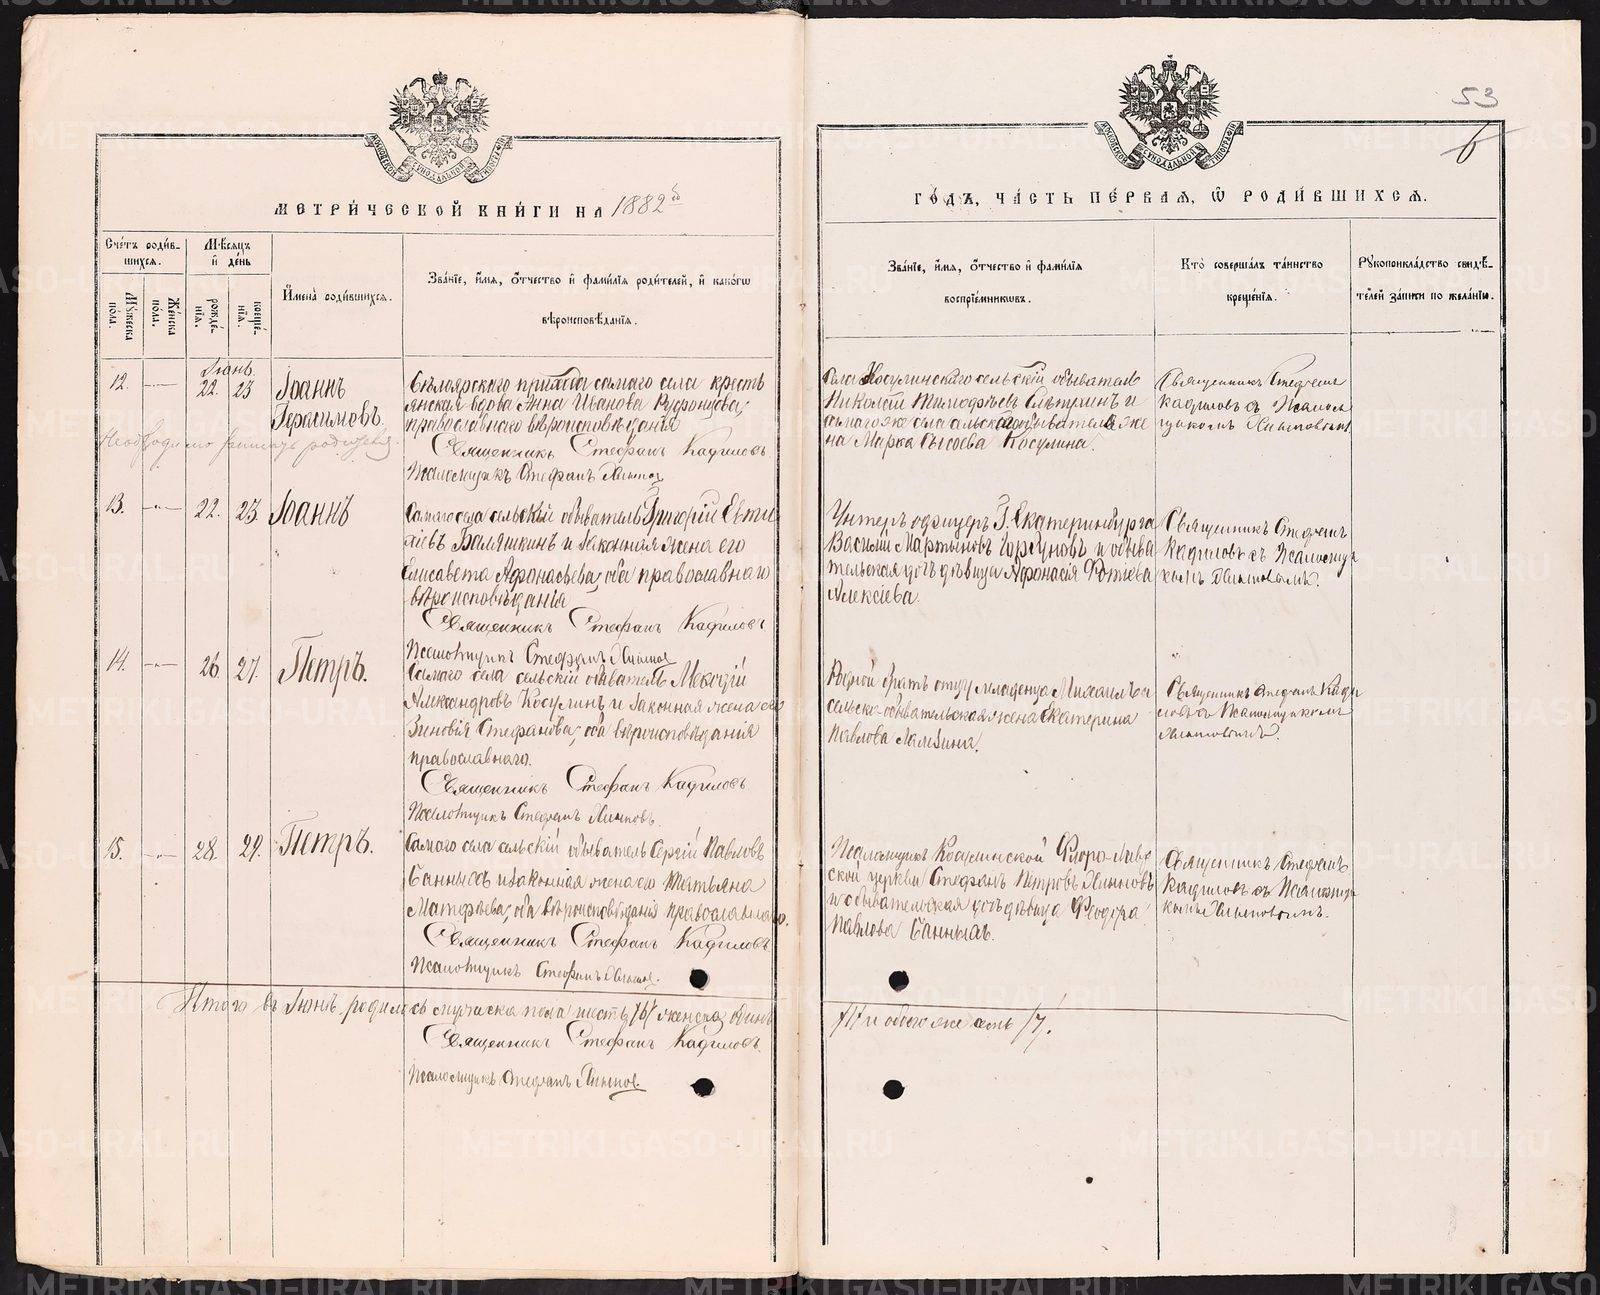 53
6
МЕТРИ́ЧЕСКОЙ КНИ́ГИ НА 1882й
ГО́ДЪ, ЧА́СТЬ ПЕ́РВАЯ, Ѡ РОДИ́ВШИХСЯ.
Сче́тъ роди́вшихся.
Мужеска пола.
Же́нска пола.
Мѣсяцъ и де́нь
рожде́нїя.
креще́нїя.
И́мена роди́вшихся.
Зва́нїе, и́мя, о́тчество и фами́лїя роди́телей, и како́гω
вѣроисповѣ́данїя.
Зва́нїе, и́мя, о́тчество и фами́лїя
воспрїе́мниковъ.
Кто̀ соверша́лъ та́инство
креще́нїя.
Рꙋкоприкла́дство свидѣ́-
телей за́писи по жела́нїю.
Іюнь.
12. 22. 23 Іоаннъ
Герасимовъ
Бѣлоярскаго прихода самаго села кресть
янская вдова Анна Иванова
православнаго вѣроисповѣданія
Священникъ Стефанъ Кадиловъ
Псаломщикъ Стефанъ Хлыновъ
Села Косулинскаго сельскій обыватель
Николай Тимофѣевъ и
самаго же села сельскаго обывателя же
на Марка Сысоева Косулина.
Священникъ Стефанъ
Кадиловъ съ Псалом
щикомъ Хлыновымъ
13. 22. 23. Іоаннъ
Самаго села сельскій обыватель Григорій Евти
хіевъ и законная жена его
Елисавета Афонасьева, оба православнаго
вѣроисповѣданія
Священникъ Стефанъ Кадиловъ
Псаломщикъ Стефанъ Хлыновъ
Унтеръ офицеръ Г. Екатеринбурга
Василій Мартыновъ Горбуновъ и обыва
тельская дочь дѣвица Афонасія Фотіева
Алексіева.
Священникъ Стефанъ
Кадиловъ съ Псаломщи
комъ Хлыновымъ.
14. 26. 27. Петръ.
Самаго села сельскій обыватель
Александровъ Косулинъ и законная жена его
Зиновія Стефанова, оба вѣроисповѣданія
православнаго.
Священникъ Стефанъ Кадиловъ
Псаломщикъ Стефанъ Хлыновъ.
Родной братъ отцу младенца Михаилъ и
сельско-обывательская жена Екатерина
Павлова Лямзина.
Священникъ Стефанъ Кади
ловъ съ Псаломщикомъ
Хлыновымъ.
15. 28. 29. Петръ.
Самаго села сельскій обыватель Сергій Павловъ
Банныхъ и законная жена его Татьяна
Матфѣева, оба вѣроисповѣданія православнаго.
Священникъ Стефанъ Кадиловъ
Псаломщикъ Стефанъ Хлыновъ.
Псаломщикъ Косулинской Флоро-Лавр
ской церкви Стефанъ Петровъ Хлыновъ
и обывательская дочь дѣвица Феодора
Павлова Банныхъ.
Священникъ Стефанъ
Кадиловъ съ Псаломщи
комъ Хлыновымъ.
Итого въ Іюнѣ родилось мужеска пола шесть /6/ женска одинъ
/1/ и обоего же семь /7/.
Священникъ Стефанъ Кадиловъ.
Псаломщикъ Стефанъ Хлыновъ.
METRIKI.GASO-URAL.RU